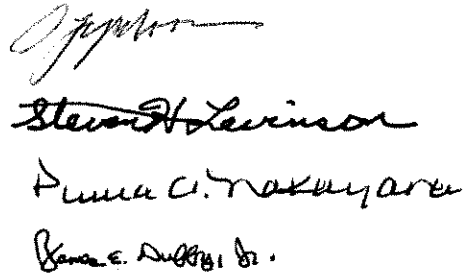 Steven H. Levinson
Paula A. Nakayama
James E. Duffy, Jr.